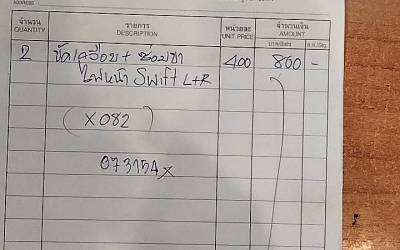 ADDRESS
จำนวน รายการ หน่วยละ จำนวนเงิน
QUANTITY DESCRIPTION UNIT PRICE AMOUNT
2 ขัดเคลือบ + ซ่อมขา 400 800 -
ไฟหน้า Swift L+R
(X082)
073154x